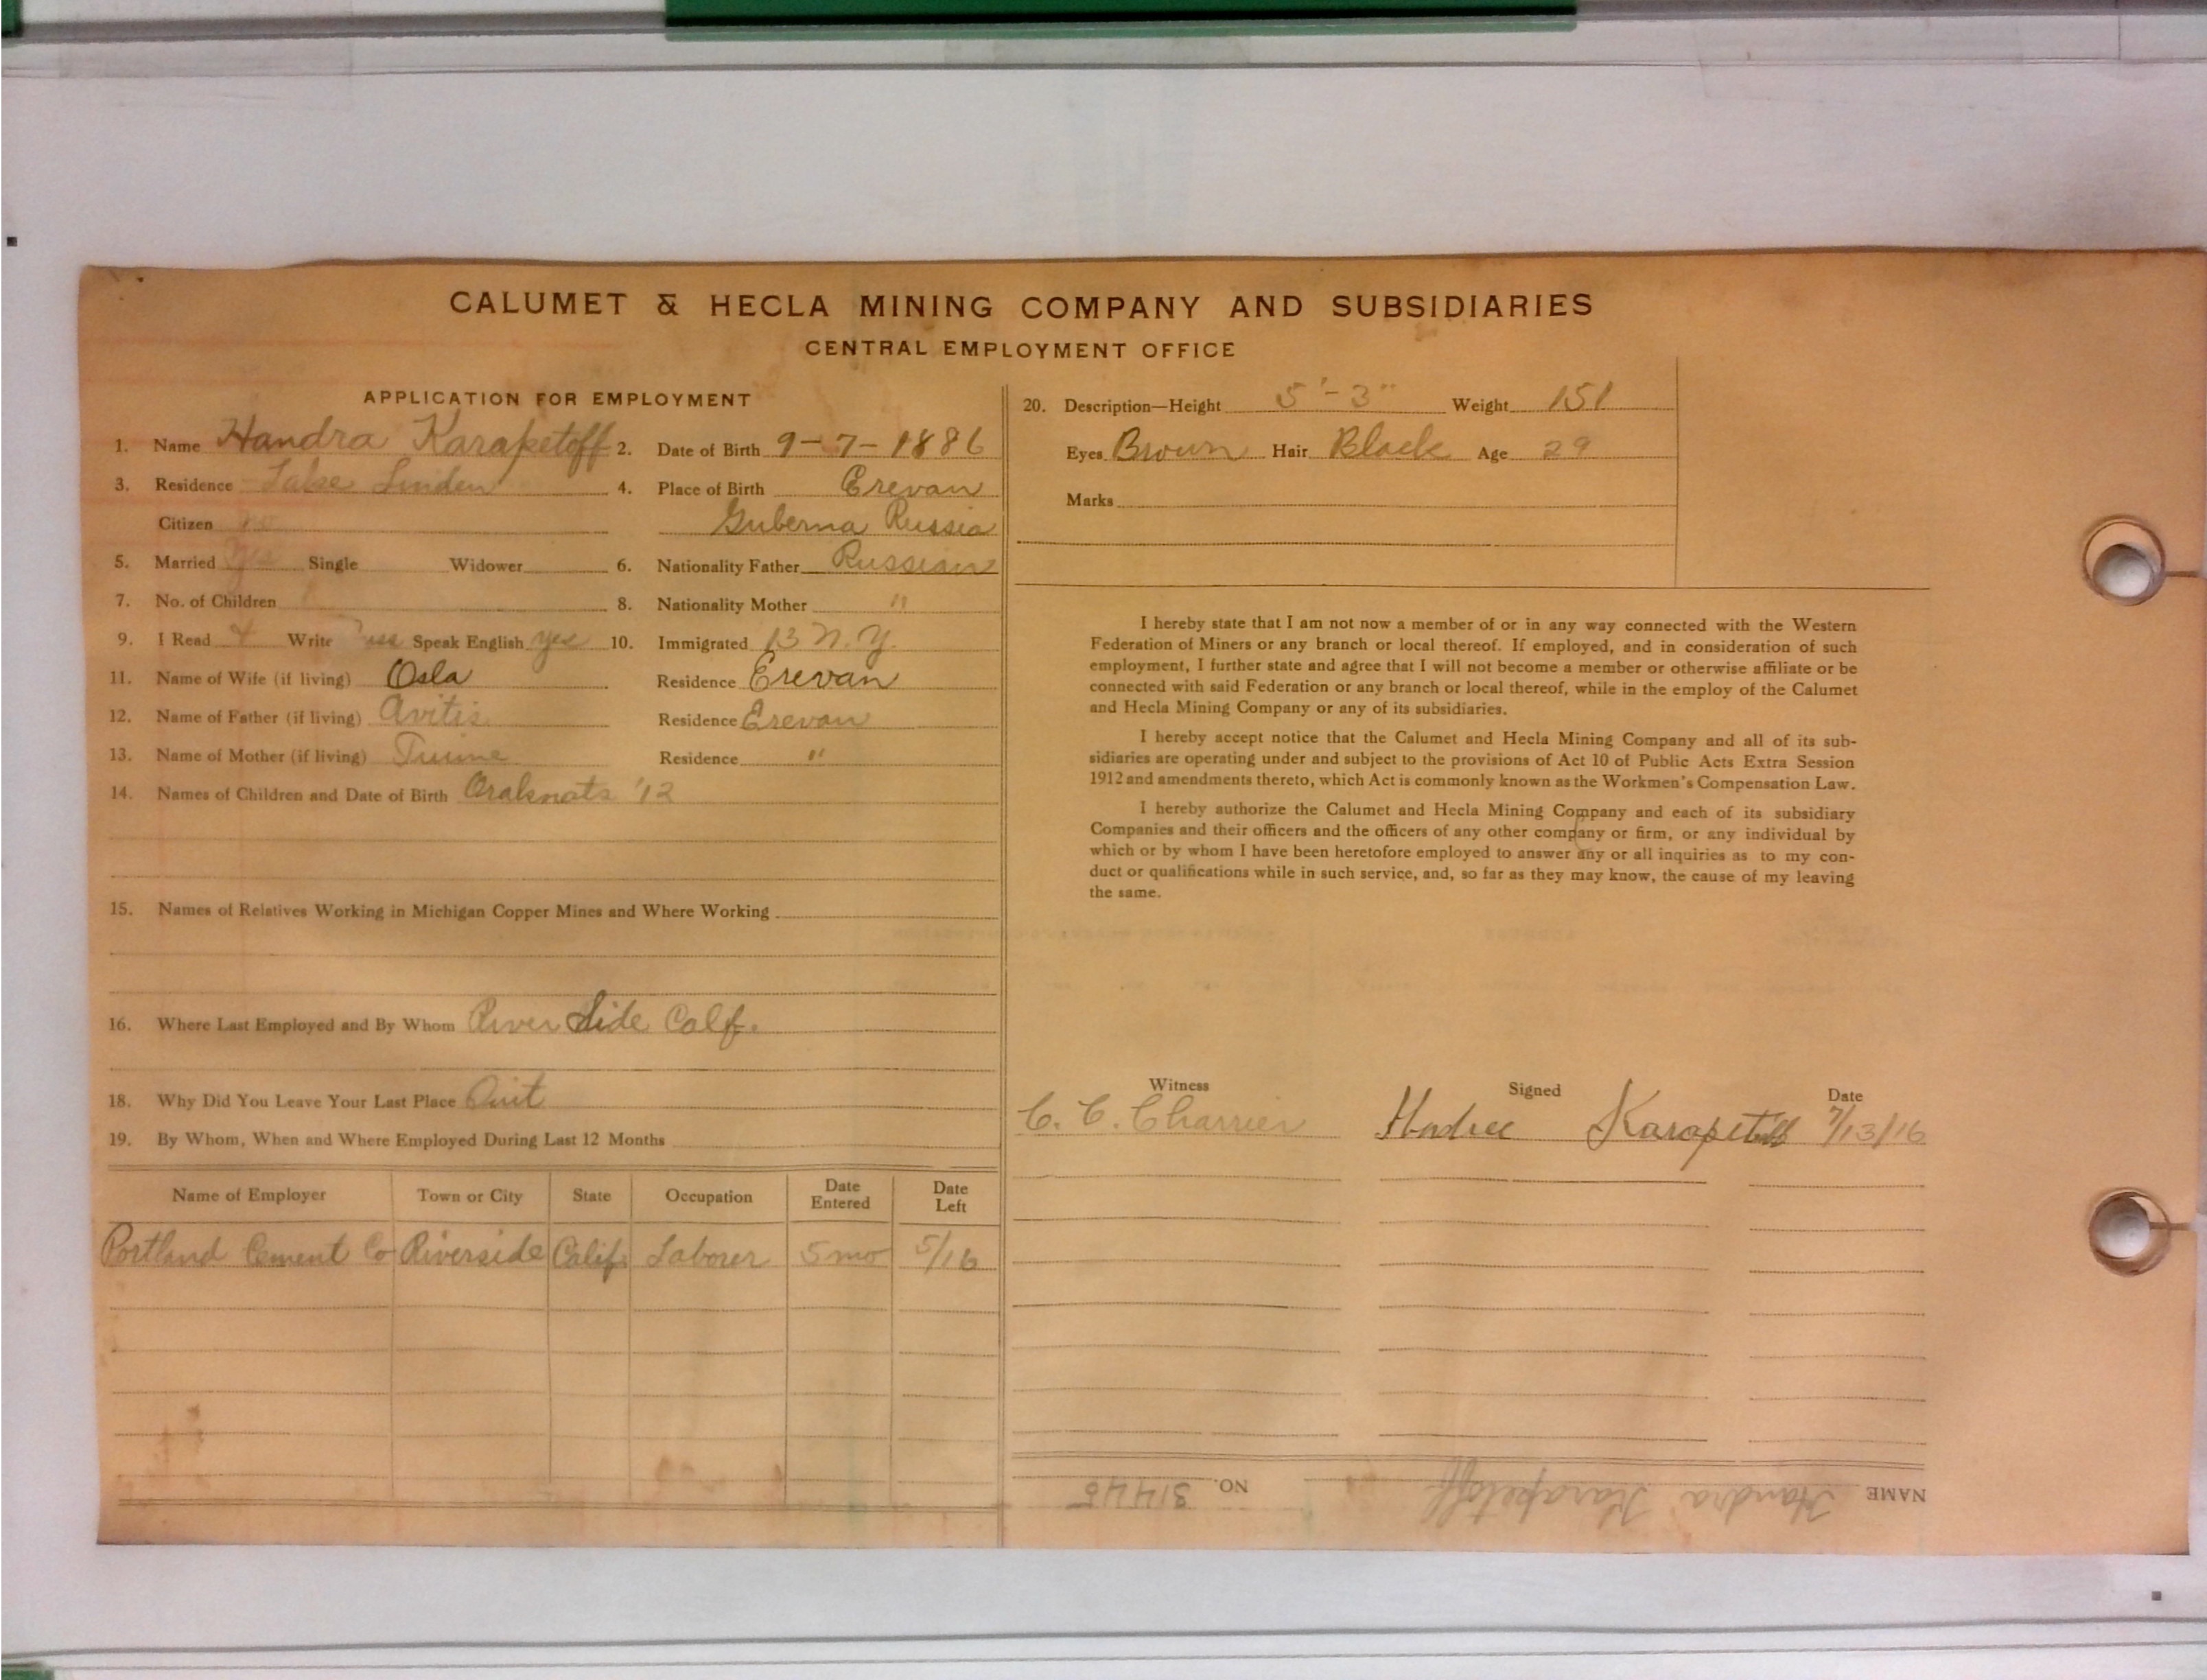 CALUMET & HECLA MINING COMPANY AND SUBSIDIARIES
CENTRAL EMPLOYMENT OFFICE
APPLICATION FOR EMPLOYMENT
1. Name Handra Karapetoff 2. Date of Birth 9-7-1886
3. Residence Lake Linden 4. Place of Birth Erevan
Citizen no Guberna Russia
5. Married Yes Single Widower 6. Nationality Father Russian
7. No. of Children 8. Nationality Mother "
9. I Read Write Speak English yes 10. Immigrated 13 N.Y.
11. Name of Wife (if living) Osla Residence Erevan
12. Name of Father (if living) Avitis Residence Erevan
13. Name of Mother (if living) Residence "
14. Names of Children and Date of Birth '12
15. Names of Relatives Working in Michigan Copper Mines and Where Working
16. Where Last Employed and By Whom River Side Calf.
18. Why Did You Leave Your Last Place Quit
19. By Whom, When and Where Employed During Last 12 Months
Name of Employer Town or City State Occupation Date Entered Date Left
Portland Cement Co Riverside Calif. Laborer 5 mo 5/16
20. Description—Height 5'-3" Weight 151
Eyes Brown Hair Black Age 29
Marks
I hereby state that I am not now a member of or in any way connected with the Western
Federation of Miners or any branch or local thereof. If employed, and in consideration of such
employment, I further state and agree that I will not become a member or otherwise affiliate or be
connected with said Federation or any branch or local thereof, while in the employ of the Calumet
and Hecla Mining Company or any of its subsidiaries.
I hereby accept notice that the Calumet and Hecla Mining Company and all of its sub-
sidiaries are operating under and subject to the provisions of Act 10 of Public Acts Extra Session
1912 and amendments thereto, which Act is commonly known as the Workmen's Compensation Law.
I hereby authorize the Calumet and Hecla Mining Company and each of its subsidiary
Companies and their officers and the officers of any other company or firm, or any individual by
which or by whom I have been heretofore employed to answer any or all inquiries as to my con-
duct or qualifications while in such service, and, so far as they may know, the cause of my leaving
the same.
Witness Signed Date
C. C. Charrier Karapetoff 7/13/16
NAME Handra Karapetoff NO. 31445